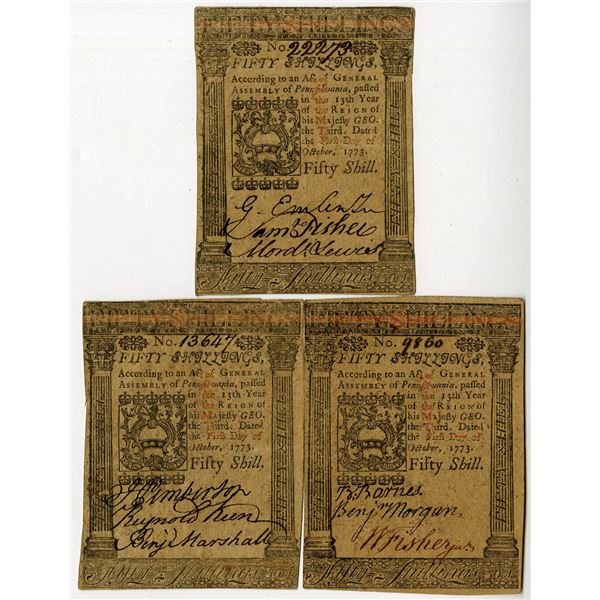 FIFTY SHILLINGS
No. 22273
FIFTY SHILLINGS,
According to an Act of GENERAL
ASSEMBLY of Pennsylvania, passed
in the 13th Year
of the REIGN of
his Majesty GEO.
the Third. Dated
the First Day of
October, 1773.
Fifty Shill.
G. Emlen Jr
Saml Fisher
Mordt Lewis
Fifty Shillings
FIFTY SHILLINGS
No. 13647
FIFTY SHILLINGS,
According to an Act of GENERAL
ASSEMBLY of Pennsylvania, passed
in the 13th Year
of the REIGN of
his Majesty GEO.
the Third. Dated
the First Day of
October, 1773.
Fifty Shill.
Pemberton
Reynold Keen
Benj. Marshall
Fifty Shillings
FIFTY SHILLINGS
No. 9860
FIFTY SHILLINGS,
According to an Act of GENERAL
ASSEMBLY of Pennsylvania, passed
in the 13th Year
of the REIGN of
his Majesty GEO.
the Third. Dated
the First Day of
October, 1773.
Fifty Shill.
B. Barnes
Benjn Morgan
W Fisher junr
Fifty Shillings